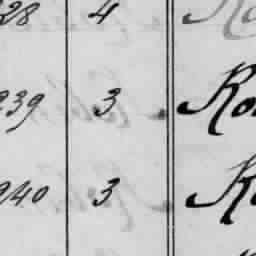 28 4 Ro
239 3 Ro
240 3 Ro